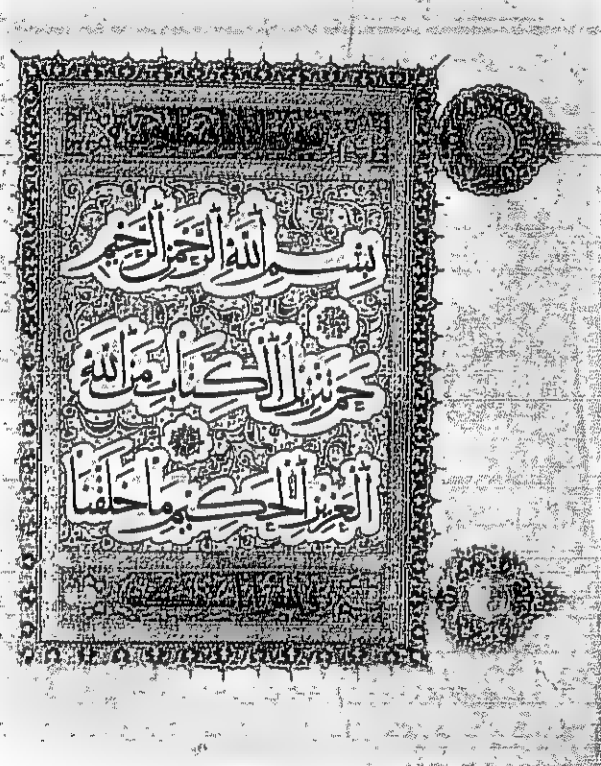 بِسْمِ اللَّهِ الرَّحْمَنِ الرَّحِيمِ
حم تَنْزِيلُ الْكِتَابِ مِنَ اللَّهِ
الْعَزِيزِ الْحَكِيمِ مَا خَلَقْنَا